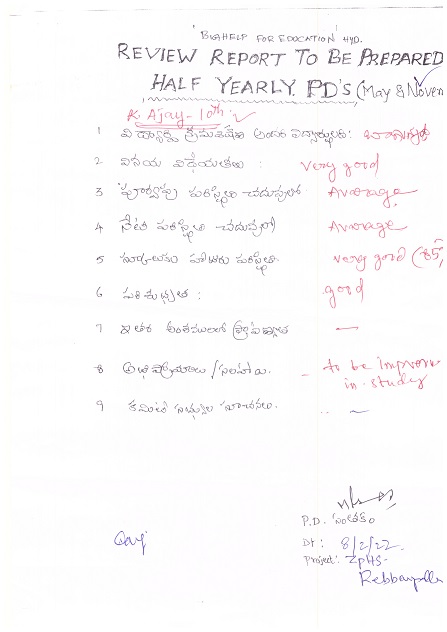 BIGHELP FOR EDUCATION HYD.
REVIEW REPORT TO BE PREPARED
HALF YEARLY PD's (May & Novem
K. Ajay - 10th
1 విద్యార్థి క్రమశిక్షణ
2 వినయ విధేయతలు : Very good
3 పూర్వపు పరిస్థితి చదువులో Average
4 నేటి పరిస్థితి చదువులో Average
5 స్కూలుకు హాజరు పరిస్థితి Very good (85
6 పరిశుభ్రత : good
7 ఇతర అంశములలో —
8 అభిప్రాయాలు / సలహాలు. - to be improve
in study
9 కమిటి సభ్యుల సూచనలు. .. ~
P.D. సంతకం
Dt : 8/2/22.
Project: ZPHS-